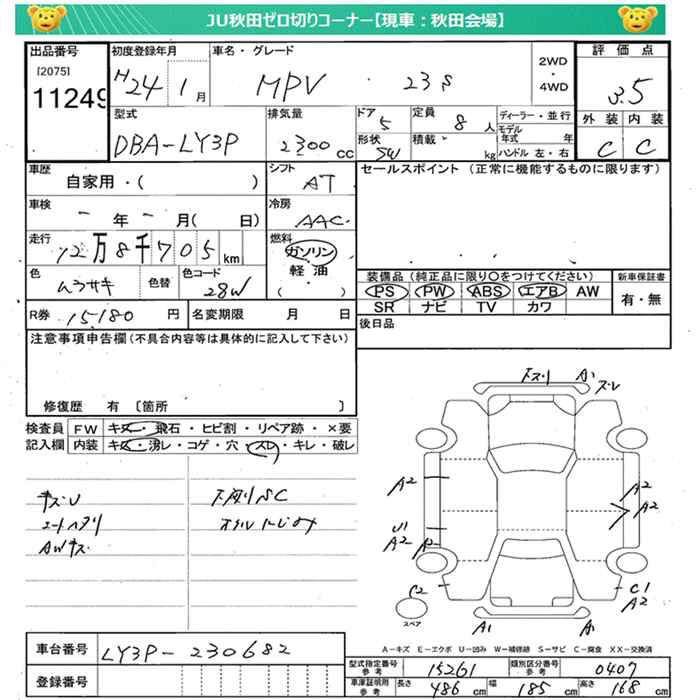 JU秋田ゼロ切りコーナー【現車：秋田会場】
出品番号
[2075]
11249
初度登録年月
H24 1 月
車名・グレード
MPV 23S
2WD
・
4WD
評価点
3.5
外装 内装
C C
型式
DBA-LY3P
排気量
2300 cc
ドア
5
形状
SW
定員
8 人
積載
kg
ディーラー・並行
モデル年式 年
ハンドル 左・右
車歴
自家用・( )
シフト
AT
セールスポイント (正常に機能するものに限ります)
車検
- 年 - 月( 日)
冷房
AAC
走行
12万8千705km
燃料
ガソリン
軽油
( )
色
ムラサキ
色替
色コード
28W
装備品 (純正品に限り○をつけてください)
PS PW ABS エアB AW
SR ナビ TV カワ
新車保証書
有・無
R券 15,180 円
名変期限 月 日
後日品
注意事項申告欄(不具合内容等は具体的に記入して下さい)
修復歴 有 [箇所 ]
検査員記入欄
FW キズ・飛石・ヒビ割・リペア跡・×要
内装 キズ・沸レ・コゲ・穴・スレ・キレ・破レ
キズU
AWキズ
下廻りSC
オイルにじみ
下ズリ A1 ズレ
A2 A2
A2
U1
A2 A2
C2 C1
A2
スペア
A1 A1
A-キズ E-エクボ U-凹み W-補修跡 S-サビ C-腐食 XX-交換済
車台番号 LY3P-230682
登録番号
型式指定番号 参考 15261
類別区分番号 参考 0407
車庫証明用 参考 長さ 486 cm 幅 185 cm 高さ 168 cm